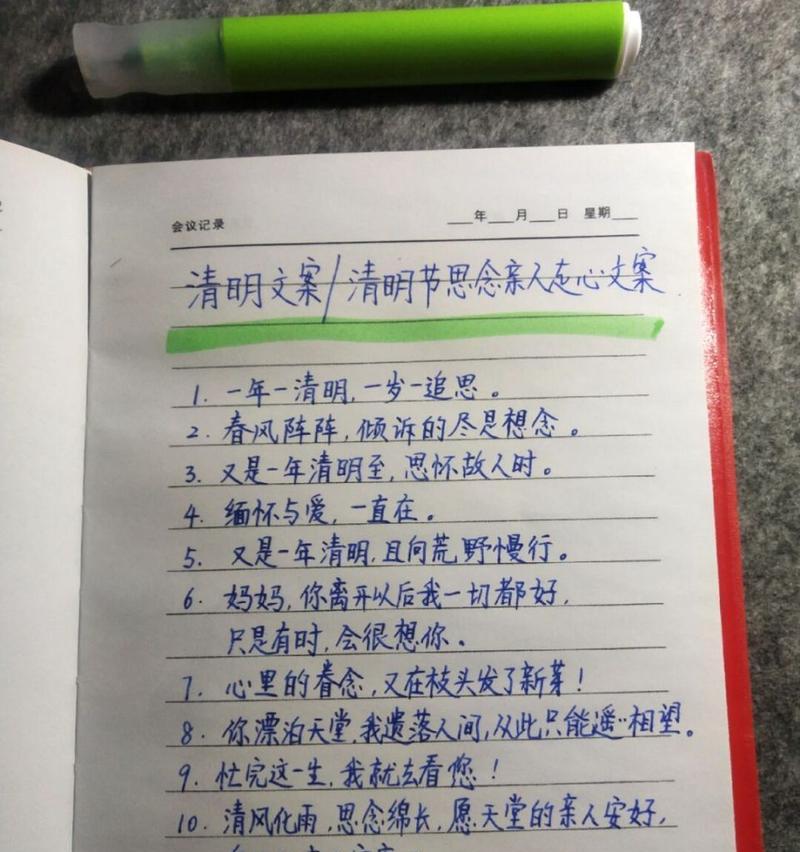 会议记录 ___年___月___日 星期___
清明文案/清明节思念亲人走心文案
1. 一年一清明,一岁一追思。
2. 春风阵阵,倾诉的尽是想念。
3. 又是一年清明至,思怀故人时。
4. 缅怀与爱,一直在。
5. 又是一年清明,且向荒野慢行。
6. 妈妈,你离开以后我一切都好,
只是有时,会很想你。
7. 心里的眷念,又在枝头发了新芽!
8. 你漂泊天堂,我遗落人间,从此只能遥相望。
9. 忙完这一生,我就去看您!
10. 清风化雨,思念绵长,愿天堂的亲人安好,